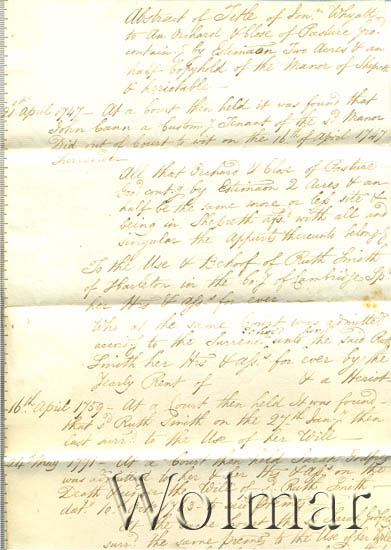 Abstract of Title of Jonn. Whyatt
to An Orchard & Close of Pasture gro.
containg by Estimaon Two Acres & an
half Copyhold of the Manor of
& heriotable —
21st April 1747 — At a Court then held it was found that
John Cann a Customy Tenant of the sd. Manor
Did out of Court to wit on the 16th of April 1741
Surrender
All that Orchard & Close of Pasture
Grd. contg. by Estimaon 2 Acres & an
half be the same more or less site &
being in afsd. with all and
singular the Appurts. thereunto belong
To the Use & Behoof of Ruth Smith
of Harleton in the Coy of Cambridge
her Hrs & Asss. for ever
Who at the same Court was admitted
according to the Surrender unto the said Ruth
Smith her Hrs & Asss. for ever by the
Yearly Rent of & a Heriot
16th April 1759 — At a Court then held It was found
that sd. Ruth Smith on the 27th Jany. then
last surrd. to the Use of her Will —
May 1771 — At a Court then held Sarah
was to her Hrs & Asss. on the
Death & the Will of sd. Ruth Smith
datd. 10
Sarah
surrd. the same premes to the Use of her Will
Wolmar